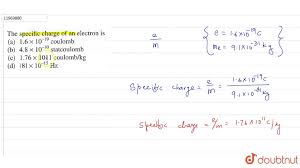 11969880
The specific charge of an electron is
(a) 1.6×10⁻¹⁹ coulomb
(b) 4.8×10⁻¹⁰ statcoulomb
(c) 1.76×10¹¹ coulomb/kg
(d) 181×10⁻¹⁵ Hz
e/m
e = 1.6×10⁻¹⁹C
mₑ = 9.1×10⁻³¹ kg
Specific charge = e/m = 1.6×10⁻¹⁹C / 9.1×10⁻³¹ kg
Specific charge = e/m = 1.76×10¹¹ C/kg
doubtnut